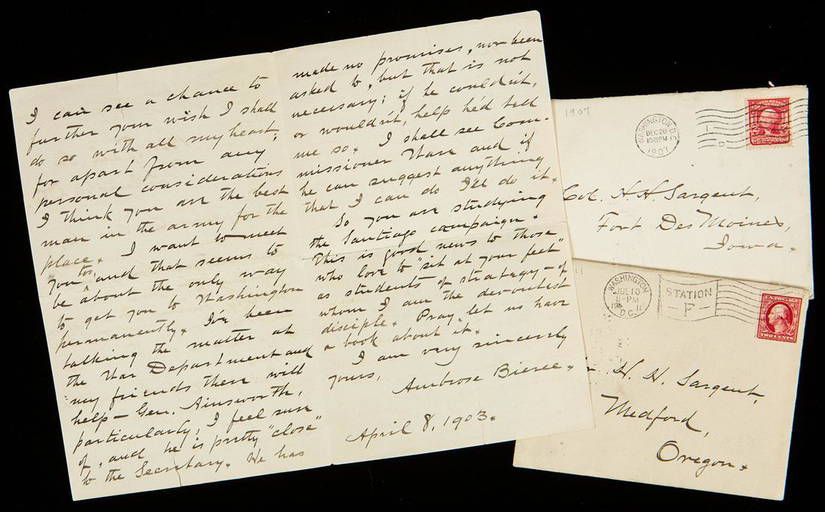 I can see a chance to
further your wish I shall
do so with all my heart,
for apart from any
personal considerations
I think you are the best
man in the army for the
place. I want to meet
you too, and that seems to
be about the only way
to get you to Washington
permanently. I've been
talking the matter at
the War Department and
my friends there will
help – Gen. Ainsworth,
particularly, I feel sure
of, and he is pretty "close"
to the Secretary. He has
made no promises, nor been
asked to, but that is not
necessary; if he couldn't,
or wouldn't, help he'd tell
me so. I shall see Com-
missioner Ware and if
he can suggest anything
that I can do I'll do it.
So you are studying
the Santiago campaign.
This is good news to those
who love to "sit at your feet"
as students of strategy – of
whom I am the devoutest
disciple. Pray let us have
a book about it.
I am very sincerely
yours,
Ambrose Bierce.
April 8, 1903.
1907
WASHINGTON, D.C.
DEC 20
1907
Col. H. H. Sargent,
Fort Des Moines,
Iowa.
WASHINGTON
JUL 10
8-PM
D.C.
STATION
F
TWO CENTS
H. H. Sargent
Medford,
Oregon.